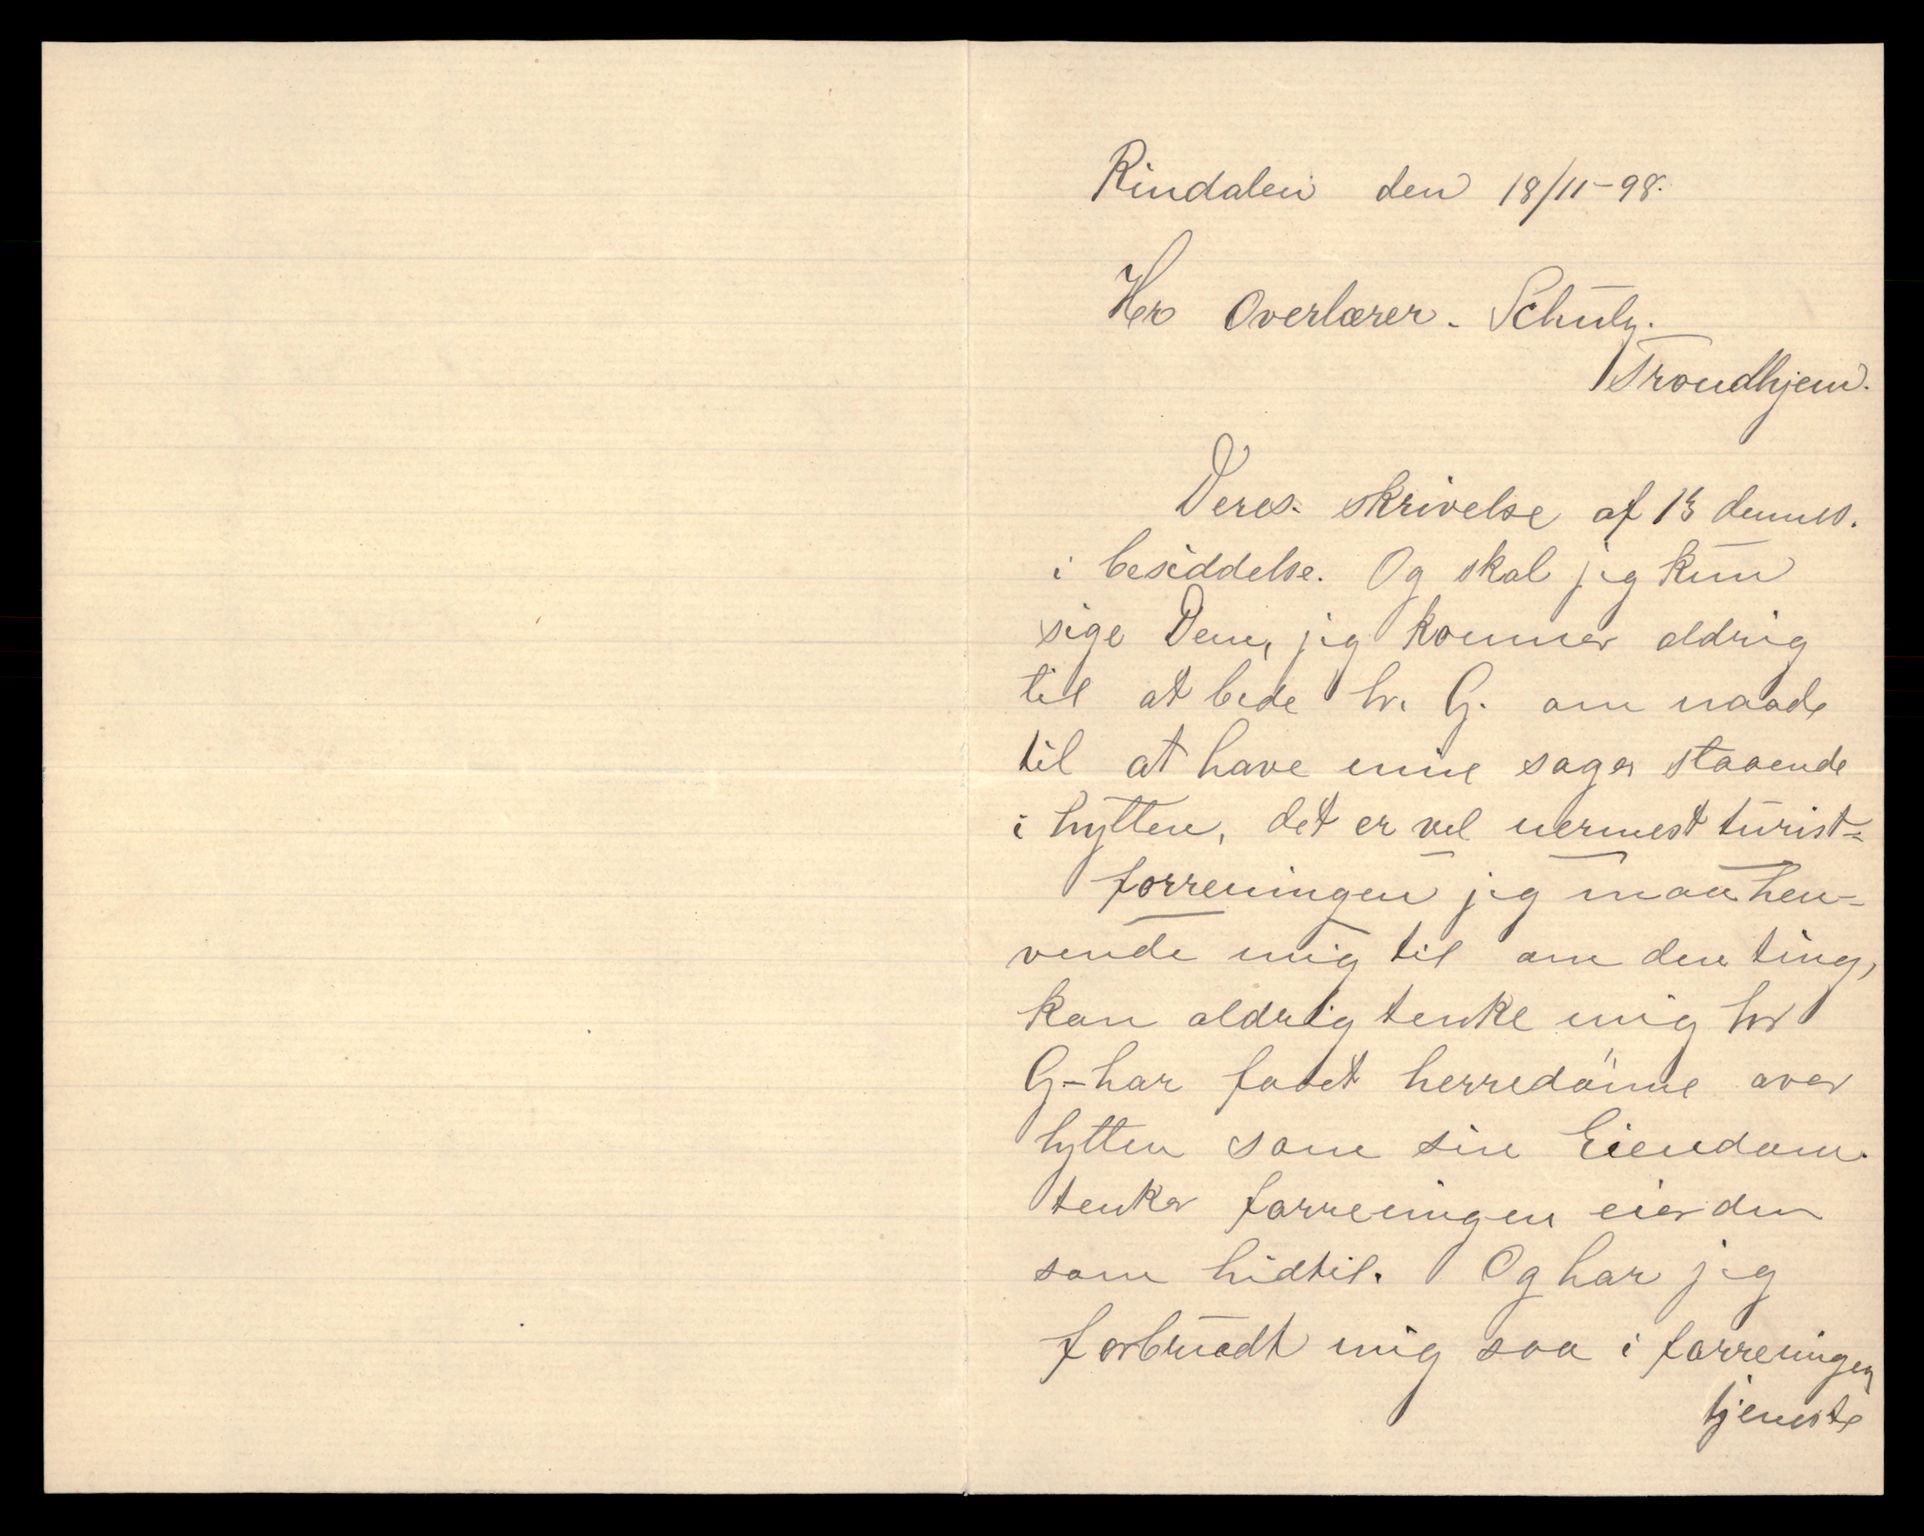 Rindalen den 18/11-98.
Her Overlærer. Schulz.
Trondhjem.
Deres. skrivelse af 15 dennes.
i besiddelse. Og skal jeg kun
sige Dem, jeg kommer aldrig
til at bede hr. G. om naade
til at have mine sager staaende
i hytten, det er vel nermest turist-
forreningen jeg maa hen-
vende mig til om den ting,
kan aldrig tenke mig hr
G-har faaet herredömme over
hytten som sin Eiendom.
tenker forreningen eier den
som hidtil. Og har jeg
forbrudt mig saa i forreningen
tjeneste